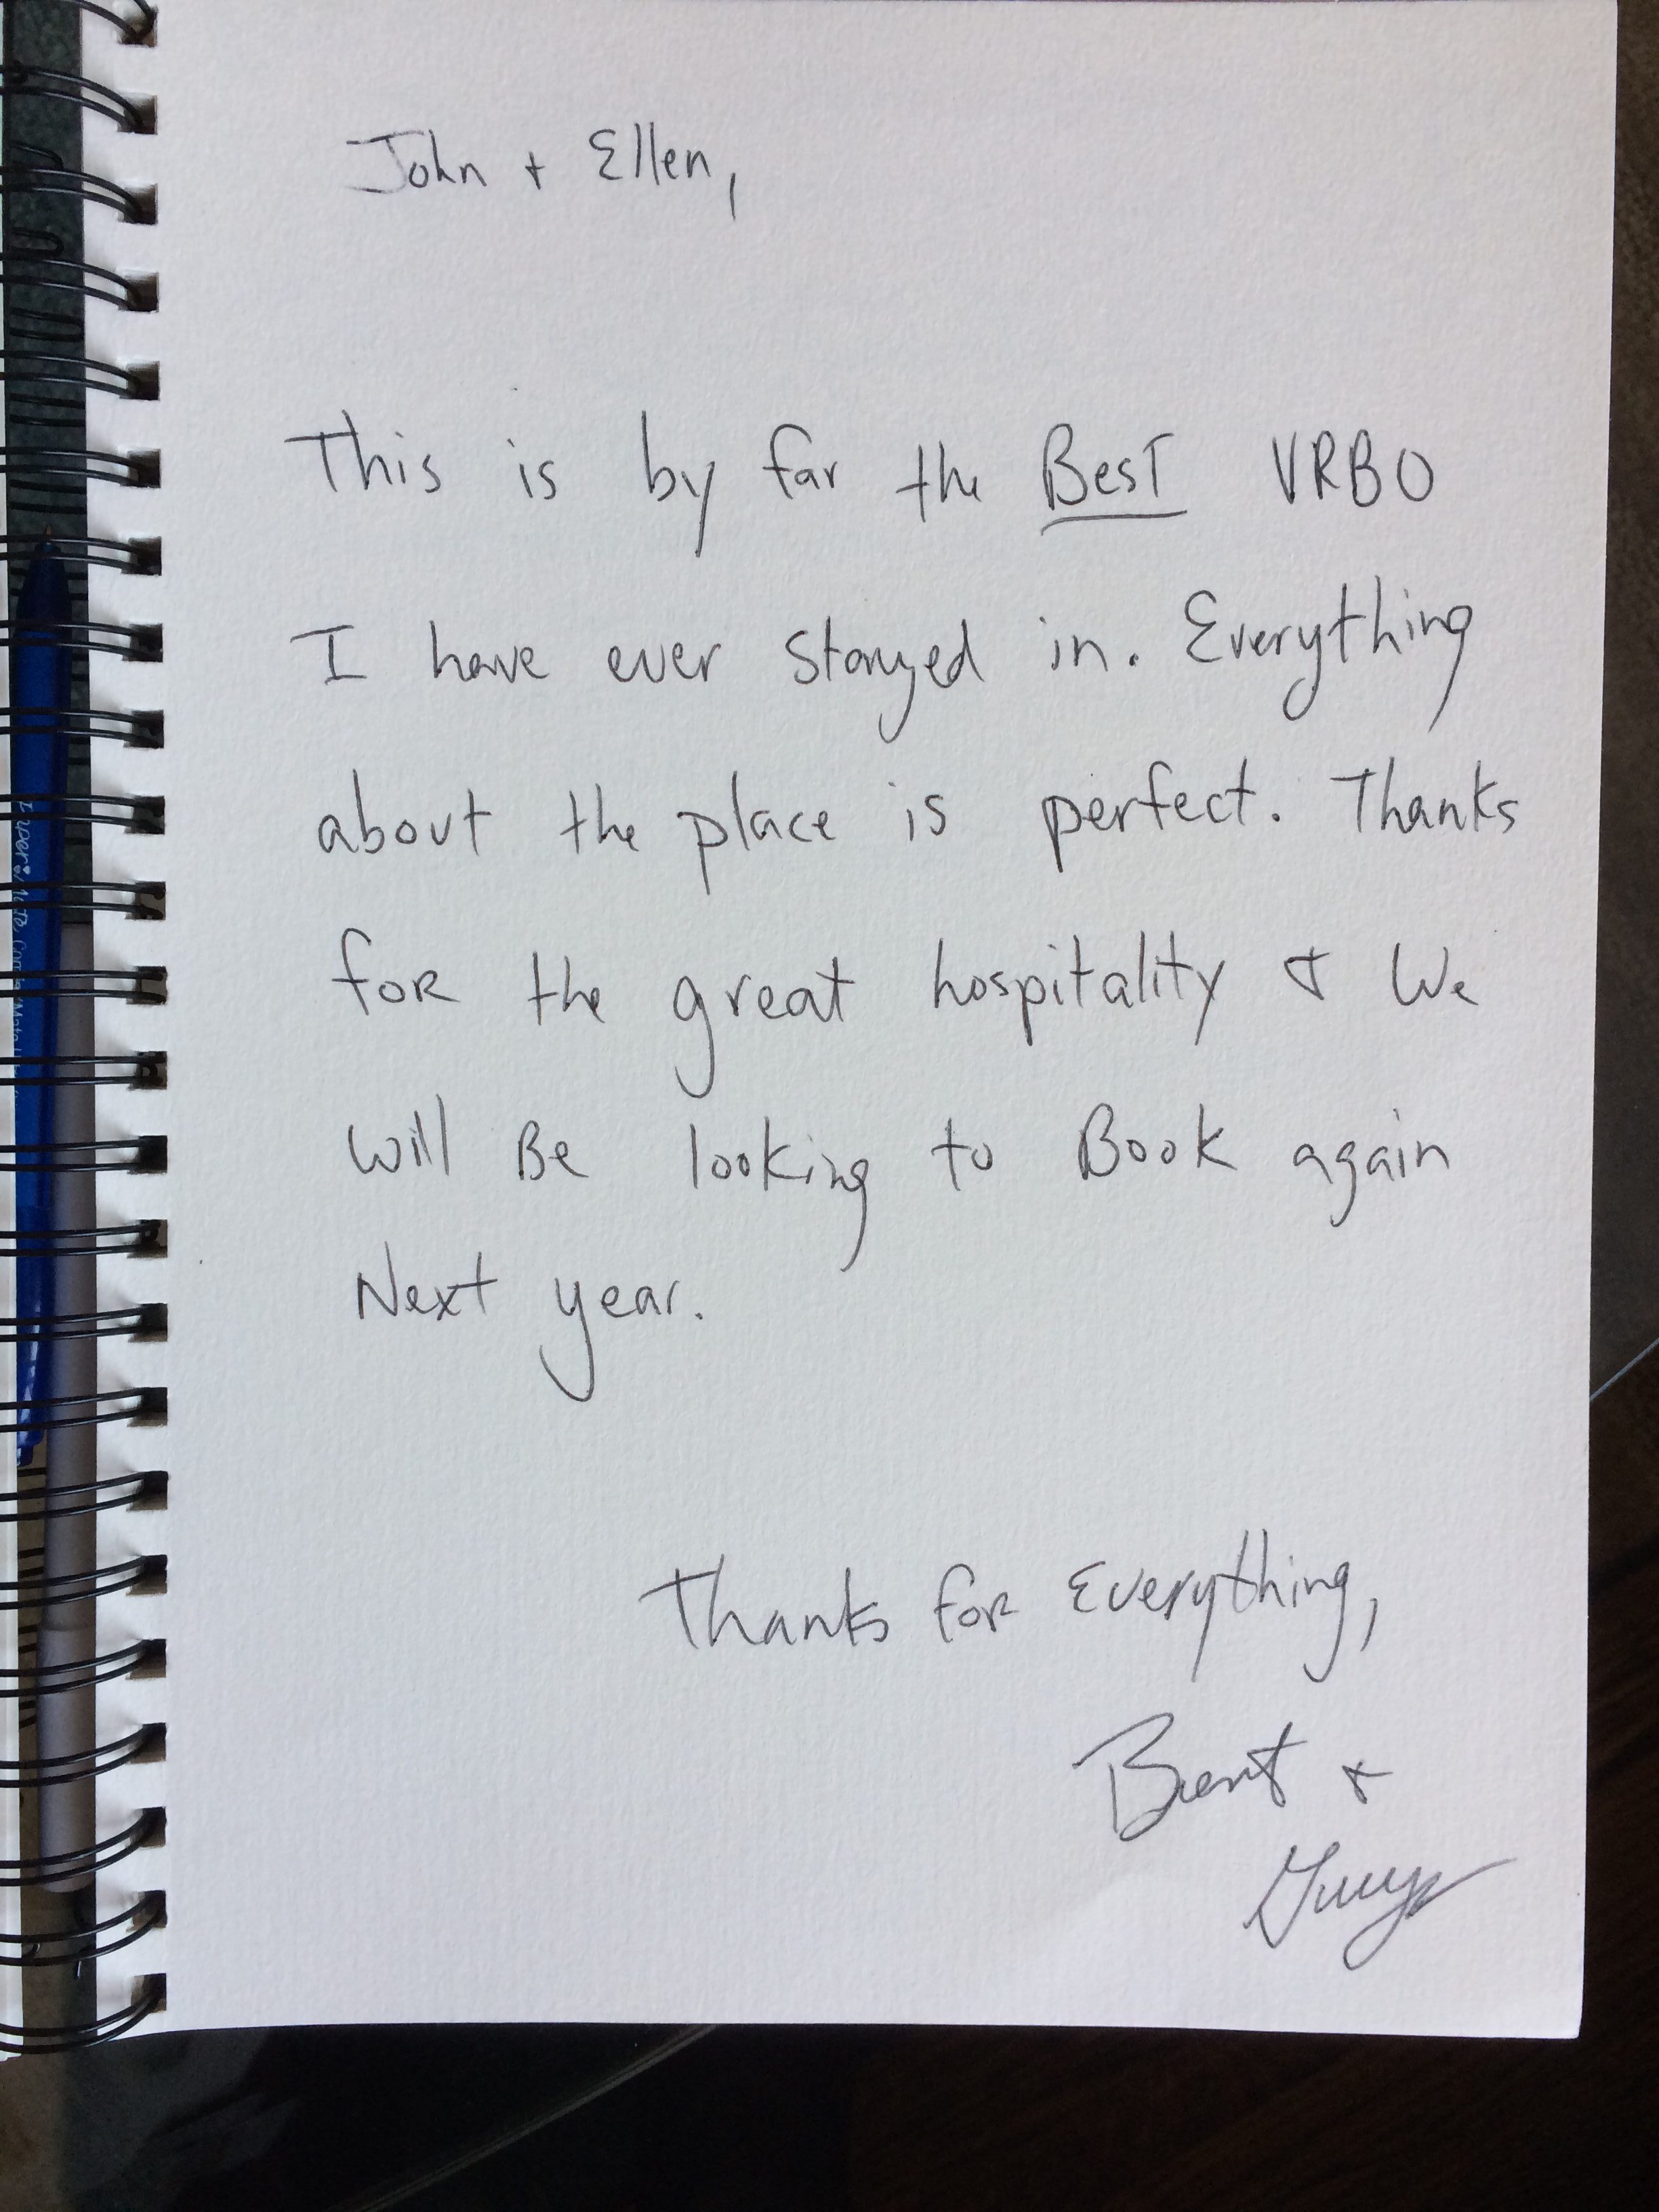 John + Ellen,
This is by far the Best VRBO
I have ever stayed in. Everything
about the place is perfect. Thanks
for the great hospitality & We
will Be looking to Book again
Next year.
Thanks for Everything,
Brent &